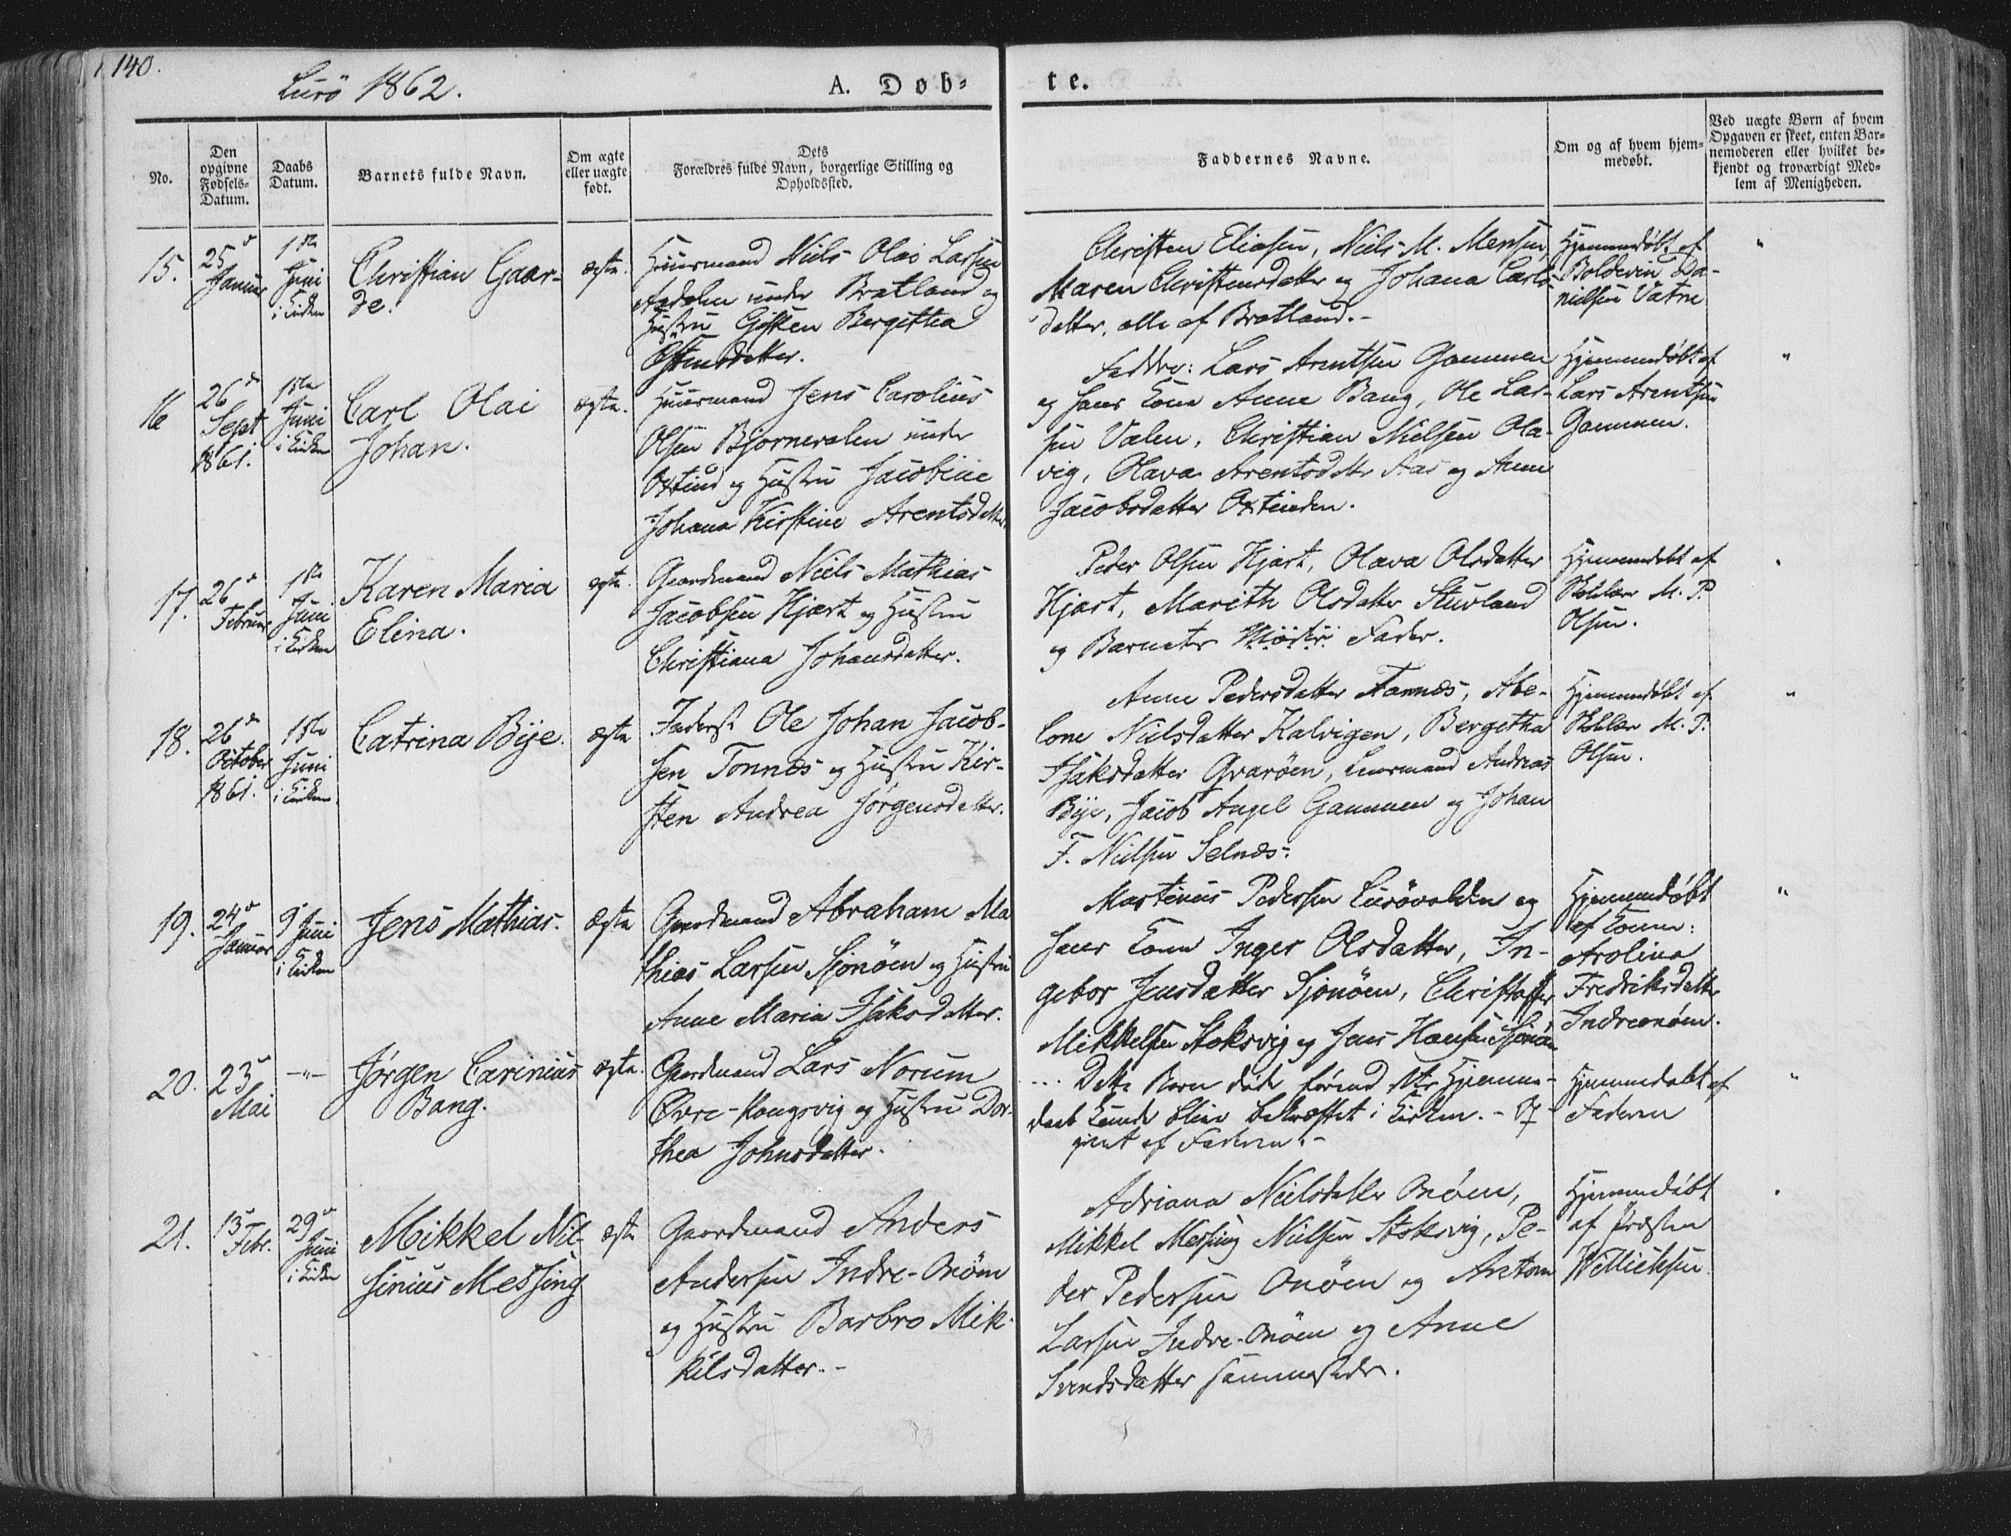 140.
Lurö 1862.
A. Døb-
te.
No.
Den opgivne Fødsels-Datum.
Daabs Datum.
Barnets fulde Navn.
Om ægte eller uægte født.
Dets Forældres fulde Navn, borgerlige Stilling og Opholdssted.
Faddernes Navne.
Om og af hvem hjem-
medøbt.
Ved uægte Børn af hvem
Opgaven er skeet, enten Bar-
nemoderen eller hvilket be-
kjendt og troværdigt Med-
lem af Menigheden.
15.
25de
Januar
1ste
Juni
i Kirken
Christian Gaar-
de.
ægte.
Huusmand Niels Olai Larsen
under Bratland og
Hustru Gjken Bergitha
Østensdatter.
Christen Eliasen, Niels M. Mensen,
Maren Christensdatter og Johana Carls-
datter, alle af Bratland.-
Hjemmedøbt af
Boldevin Da-
nielsen Vatne
"
16
26de
Sept
1861.
1ste
Juni
i Kirken
Carl Olai
Johan.
ægte.
Huusmand Jens Carolius
Olsen Bjørnevalen under
Oxtind og Hustru Jacobine
Johana Kirstine Arentsdatter
Faddre: Lars Arentsen Gammen
og hans Kone Anne Bang, Ole Lar-
sen Valen, Christian Nielsen Ola-
vig, Olava Arentsdatter Aas og Anne
Jacobsdatter Oxtinden.
Hjemmedøbt af
Lars Arentsen
Gammen.
"
17.
26de
Februar
1ste
Juni
i Kirken
Karen Maria
Elina.
ægte.
Gaardmand Niels Mathias
Jacobsen Hjart og Hustru
Christiana Johansdatter.
Peder Olsen Hjart, Olava Olsdatter
Hjart, Marith Olsdatter Stuvland
og Barnets Moder Fader.
Hjemmedøbt af
Skolelær M. P.
Olsen.
18.
26de
October
1861.
1ste
Juni
i Kirken
Catrina Bye.
ægte
Inderst Ole Johan Jacob-
sen Tonnes og Hustru Kir-
sten Andrea Jørgensdatter.
Anne Pedersdatter Tonnes, Abe-
lone Nielsdatter Kalvigen, Bergitha
Isaksdatter Qvarøen, Lensmand Andreas
Bye, Jacob Angel Gammen og Johan
F. Nielsen Selnes.
Hjemmedøbt af
Skolelær M. P.
Olsen.
"
19.
24de
Januar
9de
Juni
i Kirken
Jens Mathias.
ægte
Gaardmand Abraham Ma
thias Larsen Sjonøen og Hustru
Anne Maria Isaksdatter.
Martinus Pedersen Lurøvolden og
hans Kone Inger Olsdatter, In-
gebor Jensdatter Sjonøen, Christoffer
Mikkelsen Stoksvig og Jens Hansen Sjonøen
Hjemmedøbt
af Konen:
Arolina
Fredriksdatter
Indreonøen.
"
20.
23de
Mai
-"-
Jørgen Carinius
Bang.
ægte.
Gaardmand Lars Norum
Øvre-Kongsvig og Hustru Dor-
thea Johnsdatter.
Dette Barn døde førend dets Hjemme-
daab kunde blive bekræftet i Kirken. - Op-
givet af Faderen.-
Hjemmedøbt af
Faderen
"
21.
13de
Febr.
29de
Juni
i Kirken
Mikkel Nil-
sinius Messing
ægte
Gaardmand Anders
Andersen Indre-Onøen
og Hustru Barbro Mik-
kelsdatter.-
Adriana Nielsdatter Onøen,
Mikkel Messing Nielsen Stoksvig, Pe-
der Pedersen Onøen og Anton
Larsen Indre-Onøen og Anne
Svendsdatter sammesteds.
Hjemmedøbt
af Præsten
Willichsen.